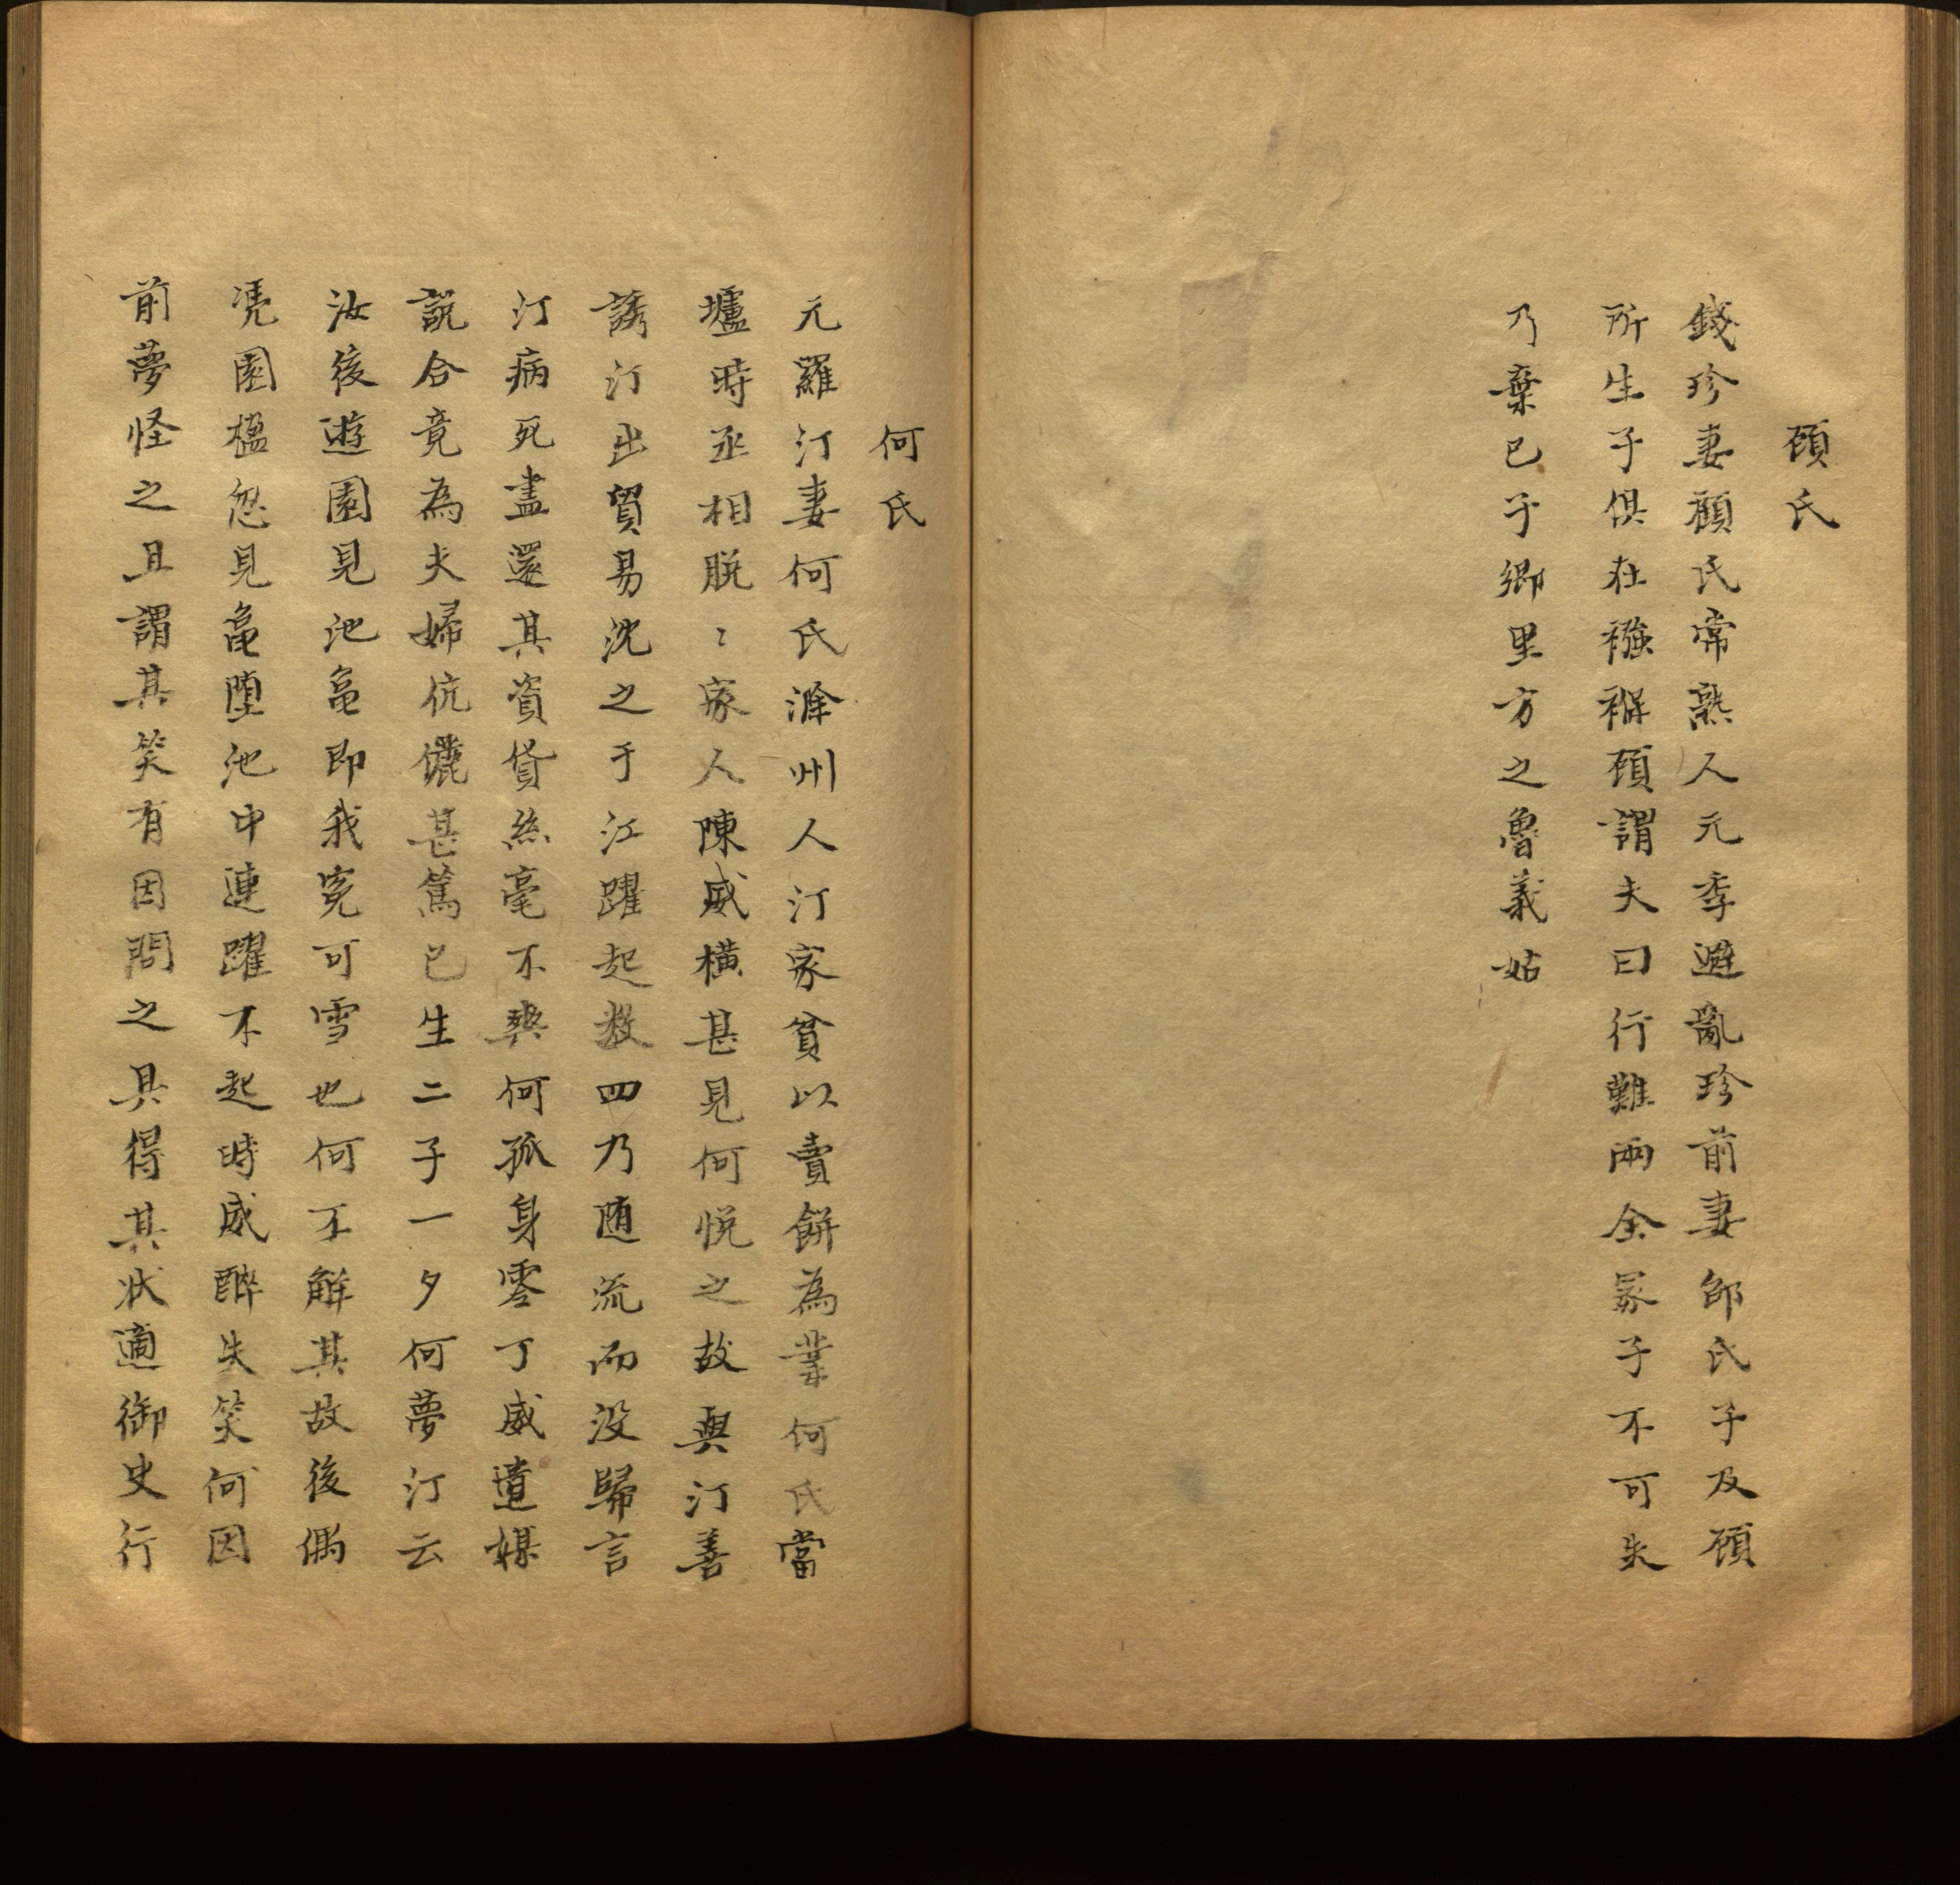 顧氏
錢珍妻顧氏常熟人元季避亂珍前妻邵氏子及顧
所生子俱在襁褓顧謂夫曰行難兩全冢子不可失
乃棄已子鄉里方之魯義姑
何氏
元羅汀妻何氏滁州人汀家貧以賣餅為業何氏當
壚時丞相脱〻家人陳威橫甚見何悦之故與汀善
誘汀出貿易沈之于江躍起数四乃随流而没歸言
汀病死盡還其資貸絲毫不爽何孤身零丁威遣媒
説合竟為夫婦伉儷甚篤已生二子一夕何夢汀云
汝後遊園見池黽即我寃可雪也何不解其故後偶
凭園楹忽見黽墮池中連躍不起時威醉失笑何因
前夢怪之且謂其笑有因問之具得其状適御史行